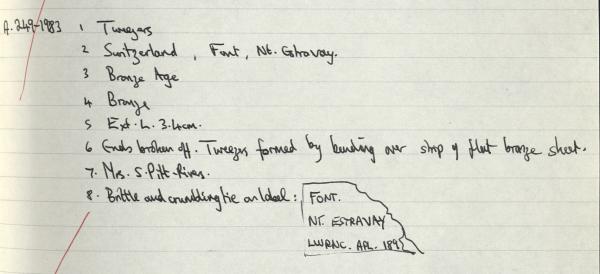 A.249-1983 1 Tweezers
2 Switzerland, Font, Nt. Estravay.
3 Bronze Age
4 Bronze
5 Ext. L. 3.4cm.
6 Ends broken off. Tweezers formed by bending over strip of flat bronze sheet.
7. Mrs. S. Pitt-Rivers.
8. Brittle and crumbling tie on label: FONT.
NT. ESTRAVAY
APL. 189